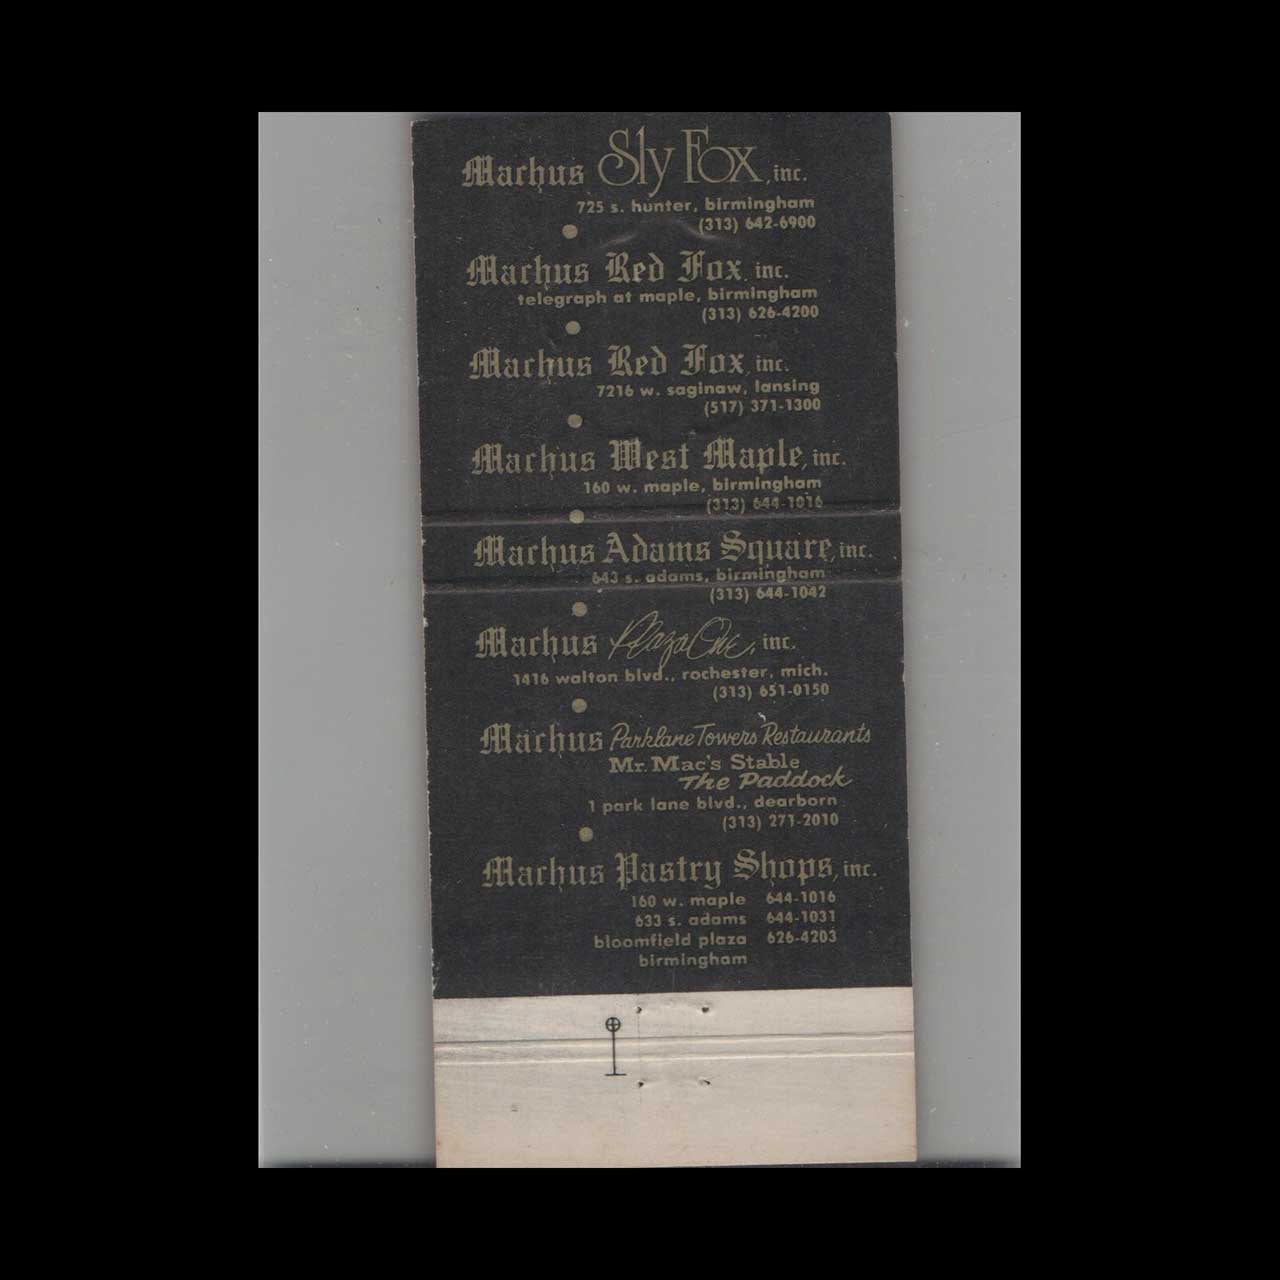 Machus Sly Fox, inc.
725 s. hunter, birmingham
(313) 642-6900
Machus Red Fox, inc.
telegraph at maple, birmingham
(313) 626-4200
Machus Red Fox, inc.
7216 w. saginaw, lansing
(517) 371-1300
Machus West Maple, inc.
160 w. maple, birmingham
(313) 644-1016
Machus Adams Square, inc.
643 s. adams, birmingham
(313) 644-1042
Machus Plaza One, inc.
1416 walton blvd., rochester, mich.
(313) 651-0150
Machus Parklane Towers Restaurants
Mr. Mac's Stable
The Paddock
1 park lane blvd., dearborn
(313) 271-2010
Machus Pastry Shops, inc.
160 w. maple 644-1016
633 s. adams 644-1031
bloomfield plaza 626-4203
birmingham